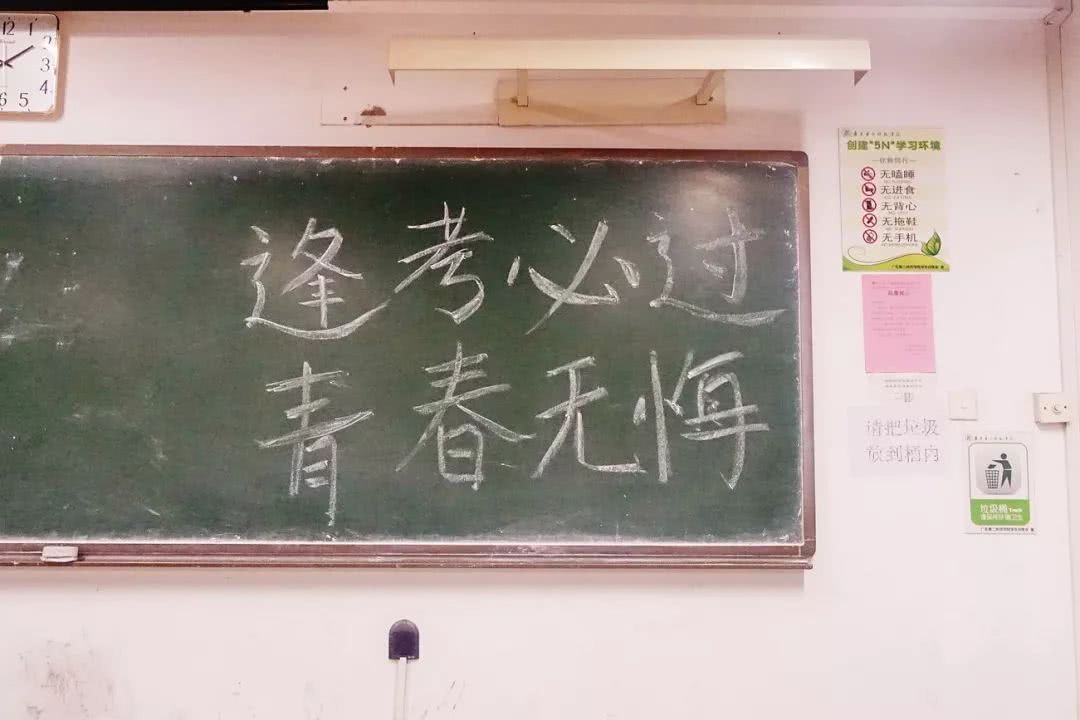 12
1
2
3
4
5
6
逢考必过
青春无悔
创建"5N"学习环境
无瞌睡
无进食
无背心
无拖鞋
无手机
请把垃圾
放到桶内
垃圾桶